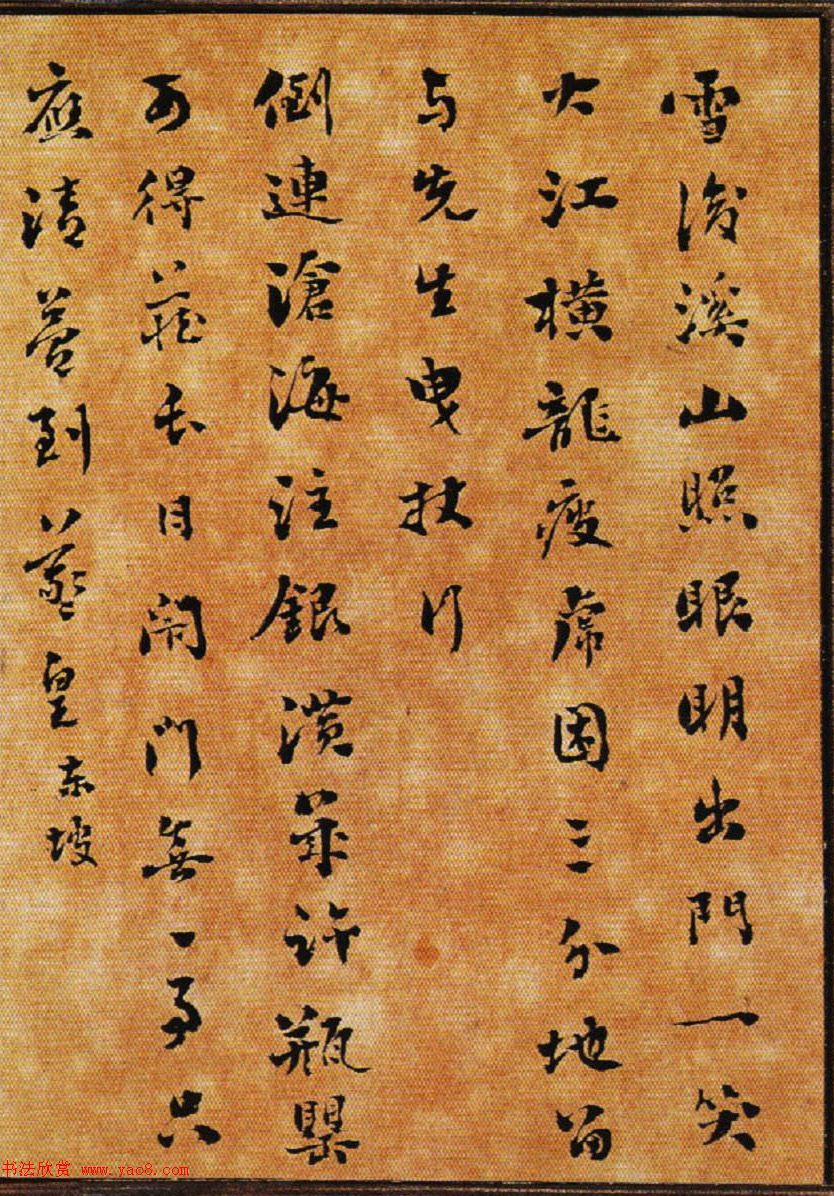 雪後溪山照眼明出門一笑
大江橫龍瘦虎困三分地留
与先生曳杖行
倒連滄海注銀潢幾許瓶罌
可得藏長日閉門無一事只
應清夢到羲皇東坡
书法欣赏 www.yac8.com